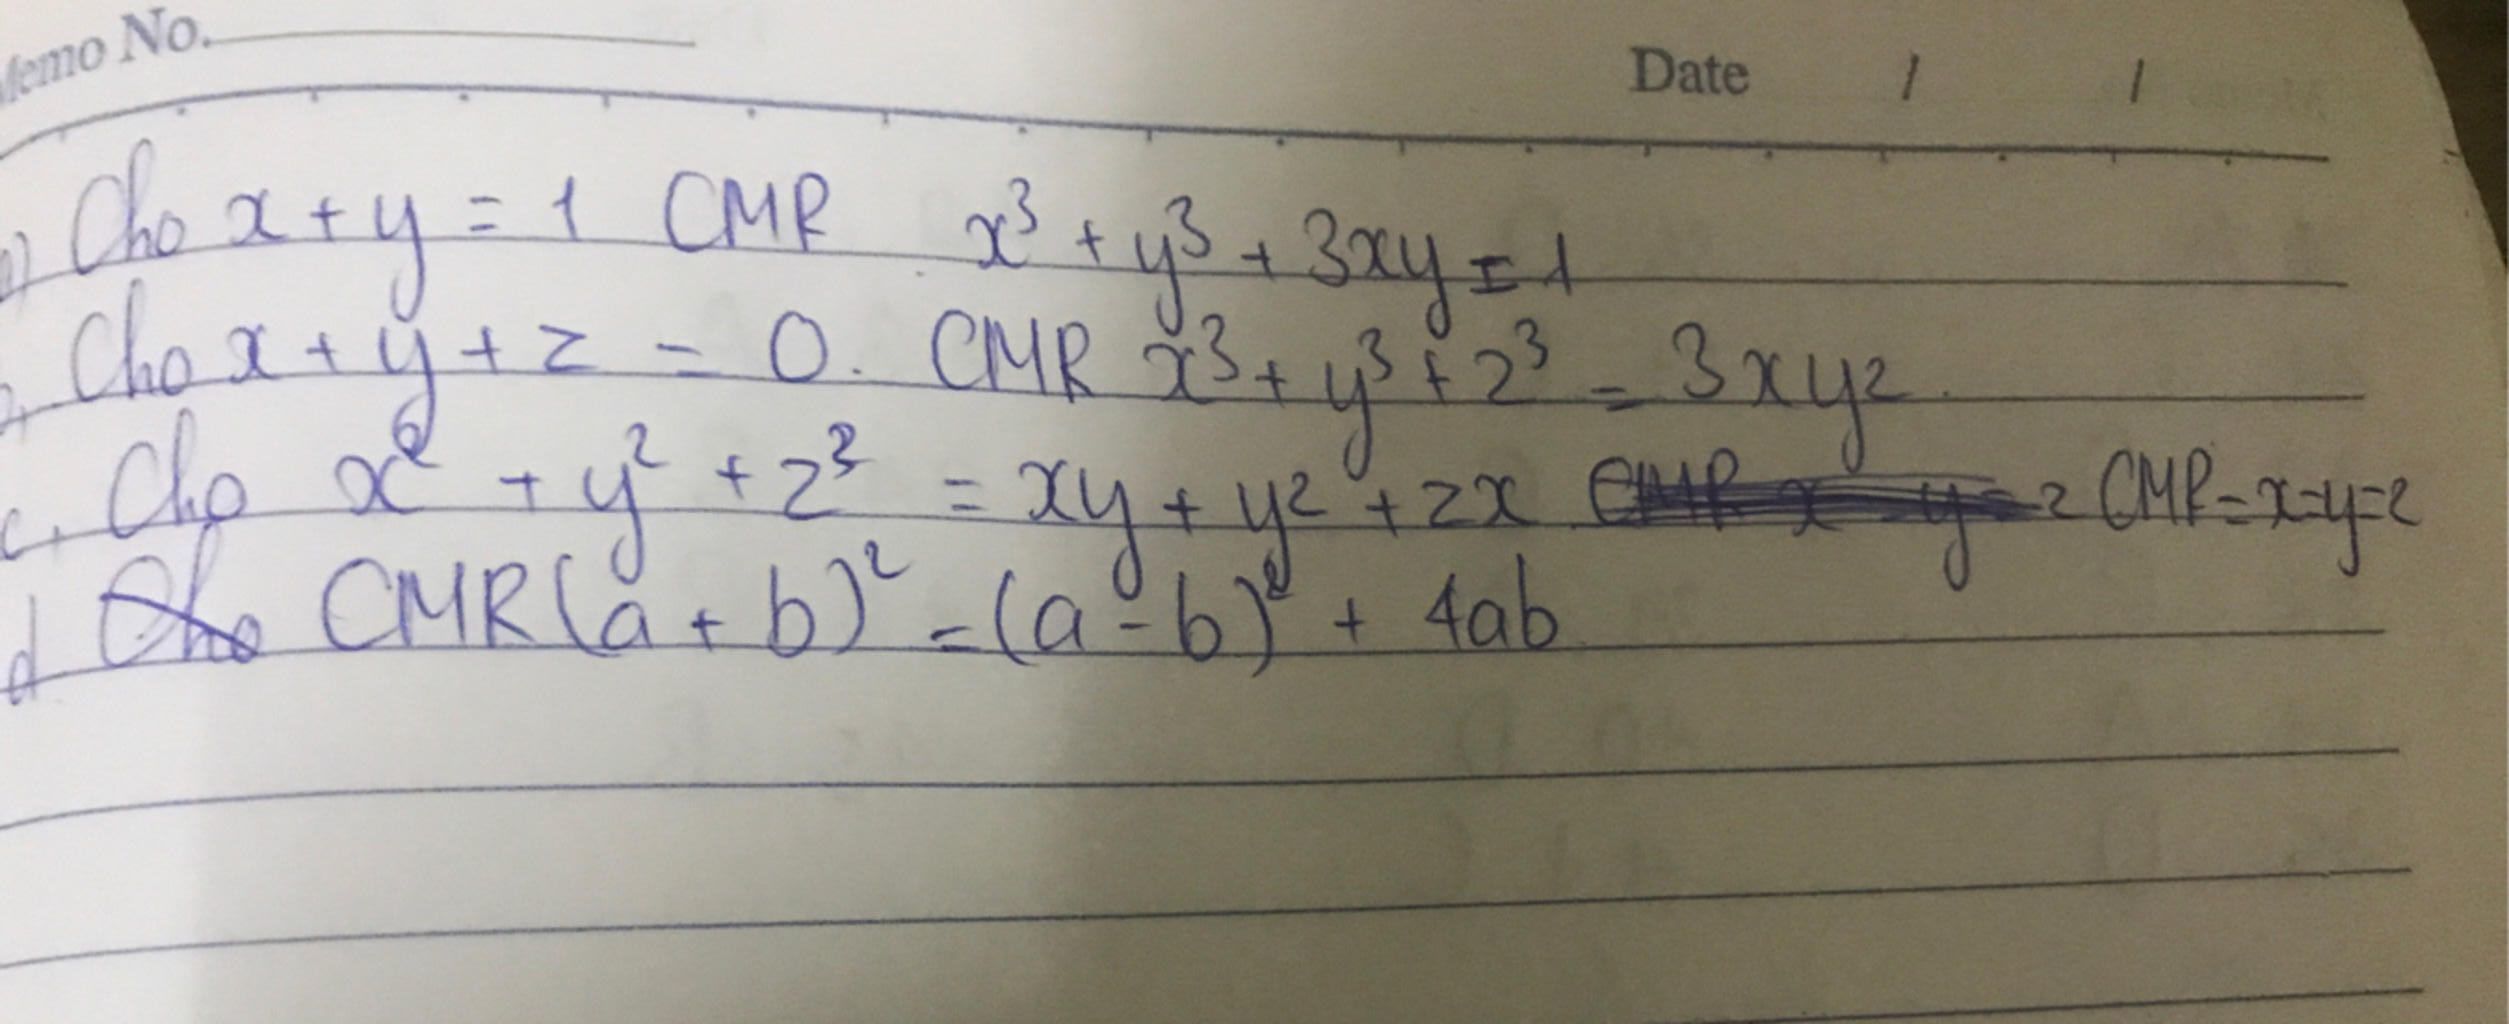 Memo No.
Date / /
a) Cho x + y = 1 CMR x³ + y³ + 3xy = 1
b, Cho x + y + z = 0. CMR x³ + y³ + z³ = 3xyz.
c, Cho x² + y² + z² = xy + yz + zx CMR = x=y=z
d CMR (a + b)² = (a - b)² + 4ab